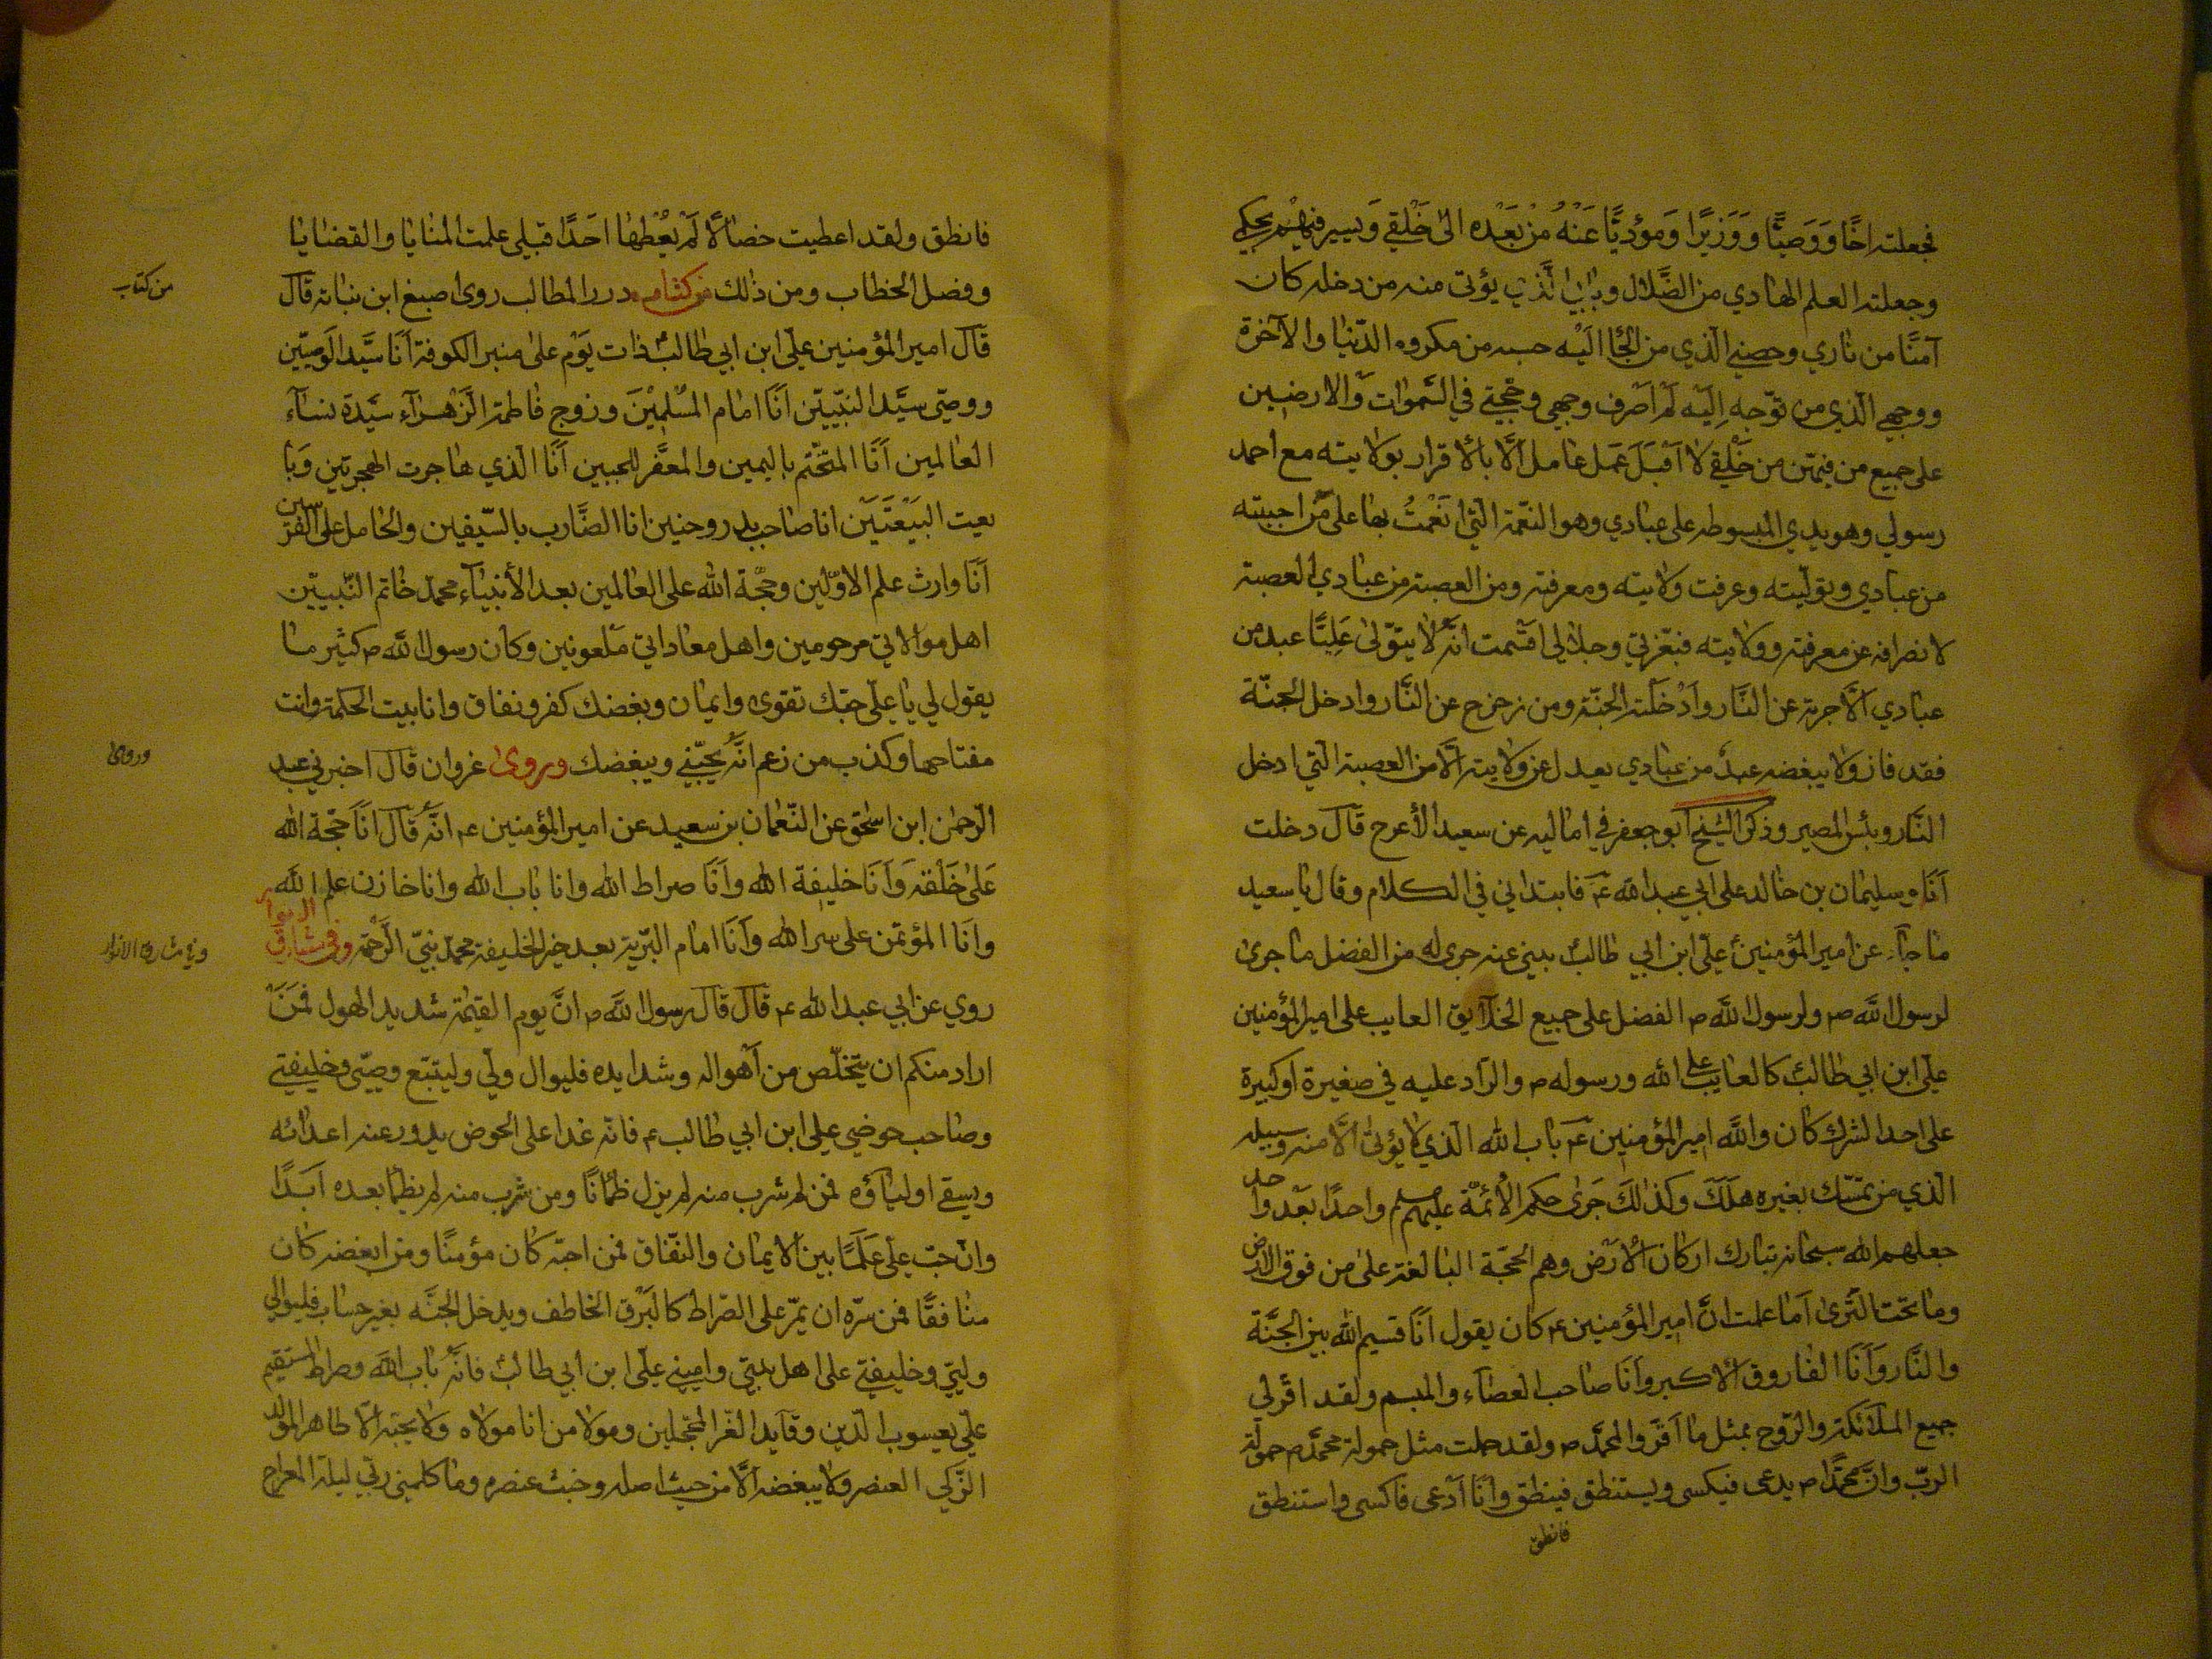 فجعلته اخًا وَوَصيًّا وَوَزيرًا وَمؤدّيًّا عَنْهُ مِنْ بَعْدِه الىٰ خَلْقي وَيسير فيهم بحكمي
وجعلته العلم الهادي من الضَّلال وبابي الَّذي يؤتى منه من دخله كان
آمنًا من ناري وحصني الّذي من لجأ اليْه حسبه من مكروه الدّنيا والآخرة
ووجهي الّذي من توّجه اِليْه لم اصرف وجهي وحجّتي في السّمٰوات والارضين
على جميع من فيهّن من خلقي لا اقبلَ عَمَل عامل الّا بالأقرار بولايته مع احمد
رسولي وهو يدي المبسوطه على عبادي وهو النعّمة الّتي انعْمتُ بها على مّن احببته
من عبادي وتوليّته وعرفت ولايته ومعرفته ومن العصبة من عبادي العصبة
لانصرافه عن معرفته وولايته فبعّزتي وجلالي اقسمت انّه لا يتوّلىٰ عَلِيًّا عبد من
عبادي الّا جرته عن النَّار وادْخلته الجنّة ومن زحزح عن النَّار وادخل الجنّة
فقد فاز ولا يبغضه عبدٌ من عبادي يعدل عن ولايته الّا من العصبة الّتي ادخل
النَّار وبئس المصير وذكر الشيخ ابو جعفر في اماليه عن سعيد الأعرج قال دخلت
اَنَا وسليمان بن خالد على ابي عبد الله ع فابتداني في الكلام وقال يا سعيد
ما جاۤء عن امير المؤمنين علّى ابن ابي طالب ينهى عنه جرى له من الفضل ما جرىٰ
لرسول الله ص ولرسول الله ص الفضل على جميع الخلايق العايب على امير المؤمنين
علّى ابن ابي طالب كالعايب على الله ورسوله ص والرّاد عليه في صغيرة او كبيرة
على احد الشرك كان والله امير المؤمنين ع باب الله الّذي لا يؤتىٰ الّا منه وسبيله
الّذي من تمسّك بغيره هلَكَ وكذٰلكَ جَرىٰ حكم الأئمّة عليهم واحدًا بعْد واحد
جعلهم الله سبحانه تبارك اركان الأرض وهم الحجّة البالغة على من فوق الارض
وما تحْت الثّرىٰ اَما علمت انَّ امير المؤمنين ع كان يقول اَنَا قسيم الله بين الجنَّة
والنَّار وَانَا الفاروق الأكبر وانَا صاحب العصاۤء والميسم ولقد اقرّ لي
جميع الملائكة والرّوح بمثل ما اقرَّوا لمحمَّد ص ولقد حملت مثل حمولة محمّد ص حمولة
الربّ وانَّ محمّدًا ص يدعى فيكسى ويستنطق فينطق وانَا ادعى فاكسى واستنطق
فانطق
فانطق ولقد اعطيت خصالًا لَمْ يُعْطها احَدًا قبلي علمت المنايا والقضايا
وفصل الخطاب ومن ذٰلك من كتاب درر المطالب روى اصبغ ابن نباته قال
من كتاب
قال امير المؤمنين علّى ابن ابي طالب ذات يَوْم علىٰ منبر الكوفة اَنَا سَيّد الوصيّين
ووصّي سيّد النبّيين اَنَا امام المسْلمينَ وزوج فاطمة الزّهراۤء سيّدة نساۤء
العالمين اَنَا المتختّم باليمين والمعفّر للجبين اَنَا الّذي هاجرت الهجرتين وبا
يعت البيْعتَيْن انا صاحب بدر وحنين انا الضَّارب بالسّيفين والحامل على الفرسين
اَنَا وارث علم الاوّلين وحجّة الله على العالمين بعد الأنبياۤء محمّد خاتم النّبييّن
اهل موالاتي مرحومين واهل معاداتي ملعونين وكان رسول الله ص كثير ما
يقول لي يا علّى حبّك تقوى وايمان وبغضك كفر ونفاق وانا بيت الحكمة وانت
مفتاحها وكذب من زعم انّه يحبّني ويبغضك وروىٰ غروان قال اخبرني عبد
وروى
الرّحمٰن ابن اسحٰق عن النّعمان بن سعيد عن امير المؤمنين ع انّه قال انَا حجّة الله
عَلىٰ خلقه وَانَا خليفة الله وانَا صراط الله وانا باب الله وانا خازن علم الله
وانَا المؤتمن على سر الله وانَا امام البّرية بعد خير الخليفة محمد نبّي الرّحمة وفي مشارق الانوار
وفي مشارق الانوار
روي عن ابي عبد الله ع قال قال رسول الله ص انَّ يوم القيٰمة شديد الهول فمن
اراد منكم ان يتخلّص من اهواله وشدايده فليوال ولّي وليتبّع وصيّي وخليفتي
وصاحب حوضي علي ابن ابي طالب ع فانه غدا على الحوض يدور عنه اعدائه
ويسقي اولياؤه فمن لم شرب منه لم يزل ظمْانًا ومن شرب منه لم يظمأ بعده ابَدًا
وانّ حبّ علّي عَلمًا بين الايمان والنّفاق فمن احبّه كان مؤمنًا ومن ابغضه كان
منافقًا فمن سرّه ان يمّر على الصّراط كالبرْق الخاطف ويدخل الجنّه بغير حساب فليوالي
وليّي وخليفتي على اهل بيتي واميني علّى ابن ابي طالب فانّه باب الله وصراط المستقيم
علّي يعسوب الدّين وقايد الغّر المحجّلين ومولا من انا مولاه ولا يحبّه الّا طاهر المولد
الزّكي العنصر ولا يبغضه الّا من خبث اصله وخبث عنصره وما كلمني ربّي ليلة المعراج